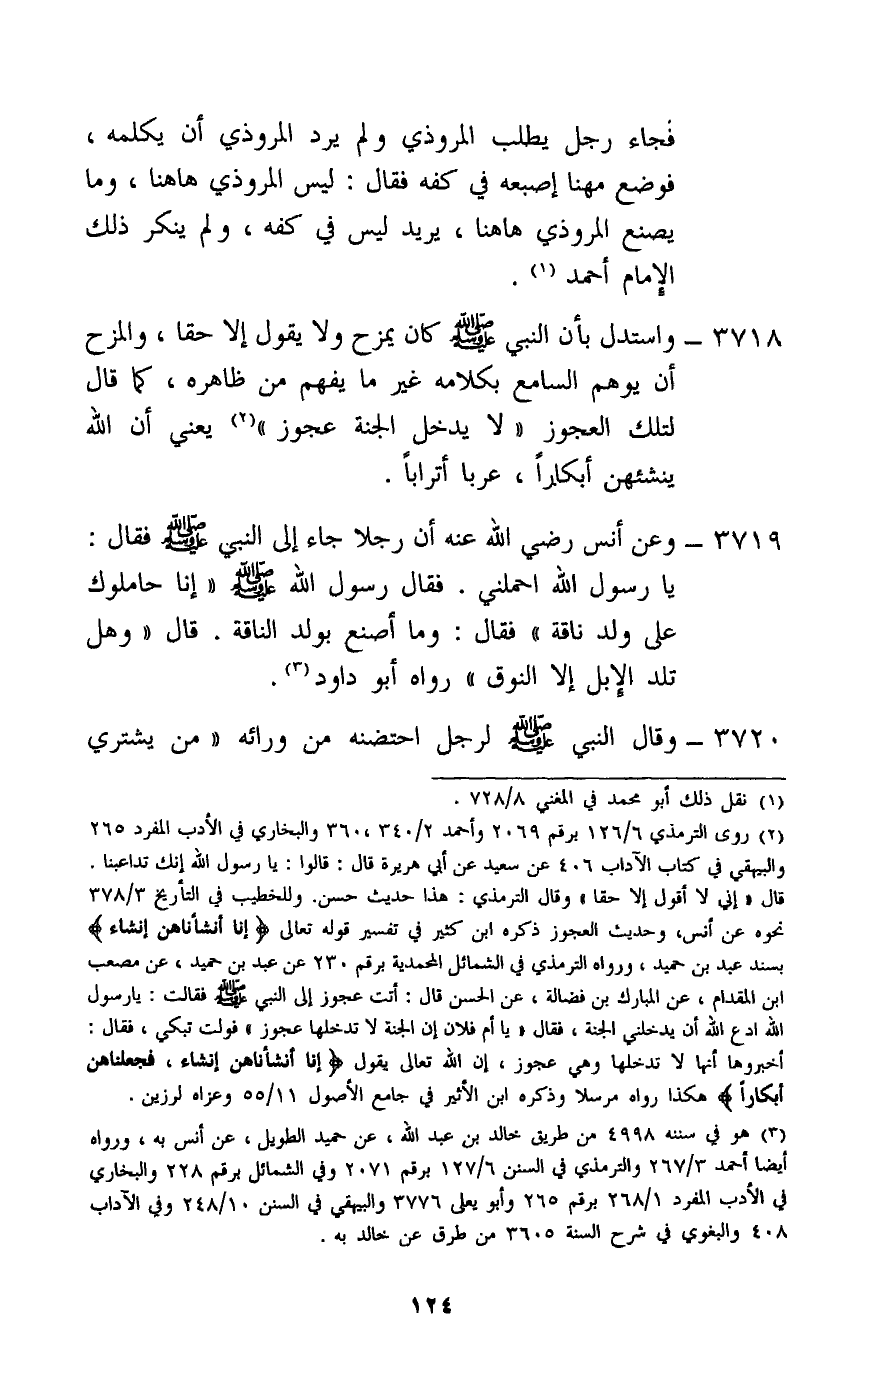 فجاء رجل يطلب المروذي ولم يرد المروذي أن يكلمه ،
فوضع مهنا إصبعه في كفه فقال : ليس المروذي هاهنا ، وما
يصنع المروذي هاهنا ، يريد ليس في كفه ، ولم ينكر ذلك
الإمام أحمد (١) .
٣٧١٨ – واستدل بأن النبي ﷺ كان يمزح ولا يقول إلا حقا ، والمزح
أن يوهم السامع بكلامه غير ما يفهم من ظاهره ، كما قال
لتلك العجوز « لا يدخل الجنة عجوز »(٢) يعني أن الله
ينشئهن أبكاراً ، عربا أتراباً .
٣٧١٩ – وعن أنس رضي الله عنه أن رجلا جاء إلى النبي ﷺ فقال :
يا رسول الله احملني . فقال رسول الله ﷺ « إنا حاملوك
على ولد ناقة » فقال : وما أصنع بولد الناقة . قال « وهل
تلد الإبل إلا النوق » رواه أبو داود(٣) .
٣٧٢٠ – وقال النبي ﷺ لرجل احتضنه من ورائه « من يشتري
(١) نقل ذلك أبو محمد في المغني ٧٢٨/٨ .
(٢) روى الترمذي ١٢٦/٦ برقم ٢٠٦٩ وأحمد ٣٤٠/٢ ،٣٦٠ والبخاري في الأدب المفرد ٢٦٥
والبيهقي في كتاب الآداب ٤٠٦ عن سعيد عن أبي هريرة قال : قالوا : يا رسول الله إنك تداعبنا .
قال « إني لا أقول إلا حقا » وقال الترمذي : هذا حديث حسن. وللخطيب في التأريخ ٣٧٨/٣
نحوه عن أنس، وحديث العجوز ذكره ابن كثير في تفسير قوله تعالى ﴿ إنا أنشأناهن إنشاء ﴾
بسند عبد بن حميد ، ورواه الترمذي في الشمائل المحمدية برقم ٢٣٠ عن عبد بن حميد ، عن مصعب
ابن المقدام ، عن المبارك بن فضالة ، عن الحسن قال : أتت عجوز إلى النبي ﷺ فقالت : يارسول
الله ادع الله أن يدخلني الجنة ، فقال « يا أم فلان إن الجنة لا تدخلها عجوز » فولت تبكي ، فقال :
أخبروها أنها لا تدخلها وهي عجوز ، إن الله تعالى يقول ﴿ إنا أنشأناهن إنشاء ، فجعلناهن
أبكاراً ﴾ هكذا رواه مرسلا وذكره ابن الأثير في جامع الأصول ٥٥/١١ وعزاه لرزين .
(٣) هو في سننه ٤٩٩٨ من طريق خالد بن عبد الله ، عن حميد الطويل ، عن أنس به ، ورواه
أيضا أحمد ٢٦٧/٣ والترمذي في السنن ١٢٧/٦ برقم ٢٠٧١ وفي الشمائل برقم ٢٢٨ والبخاري
في الأدب المفرد ٢٦٨/١ برقم ٢٦٥ وأبو يعلى ٣٧٧٦ والبيهقي في السنن ٢٤٨/١٠ وفي الآداب
٤٠٨ والبغوي في شرح السنة ٣٦٠٥ من طرق عن خالد به .
١٢٤